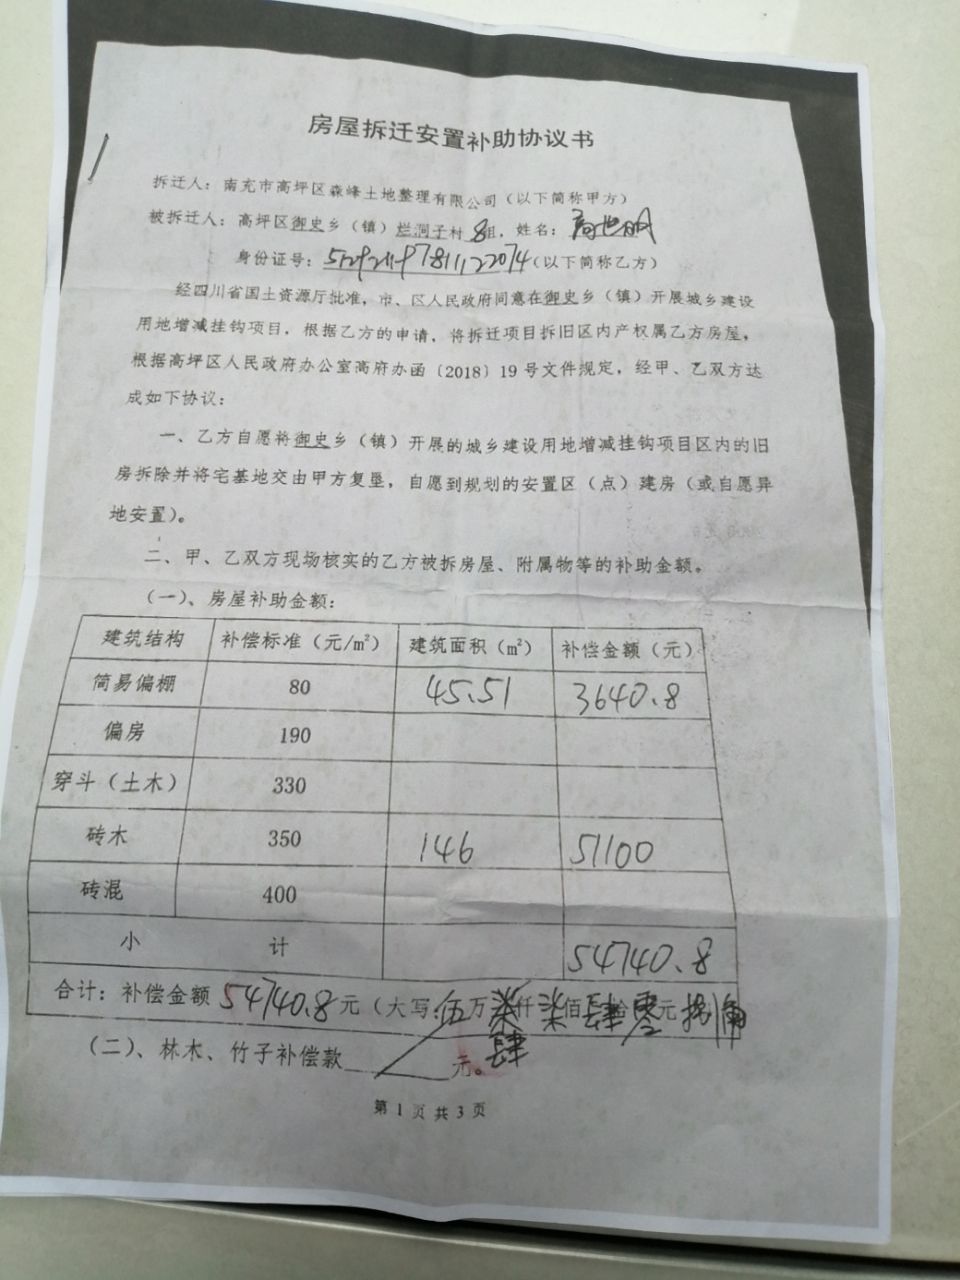 房屋拆迁安置补助协议书
拆迁人：南充市高坪区森峰土地整理有限公司（以下简称甲方）
被拆迁人：高坪区御史乡（镇）烂洞子村 8组，姓名：
身份证号：（以下简称乙方）
经四川省国土资源厅批准，市、区人民政府同意在御史乡（镇）开展城乡建设
用地增减挂钩项目．根据乙方的申请，将拆迁项目拆旧区内产权属乙方房屋，
根据高坪区人民政府办公室高府办函〔2018〕19号文件规定，经甲、乙双方达
成如下协议：
一、乙方自愿将御史乡（镇）开展的城乡建设用地增减挂钩项目区内的旧
房拆除并将宅基地交由甲方复垦，自愿到规划的安置区（点）建房（或自愿异
地安置）。
二、甲、乙双方现场核实的乙方被拆房屋、附属物等的补助金额。
（一）、房屋补助金额：
建筑结构 补偿标准（元/m²） 建筑面积（m²） 补偿金额（元）
简易偏棚 80 45.51 3640.8
偏房 190
穿斗（土木） 330
砖木 350 146 51100
砖混 400
小 计 54740.8
合计：补偿金额 54740.8 元（大写：伍万 仟柒佰肆拾零元捌角
肆
（二）、林木、竹子补偿款 元。
第 1 页 共 3 页